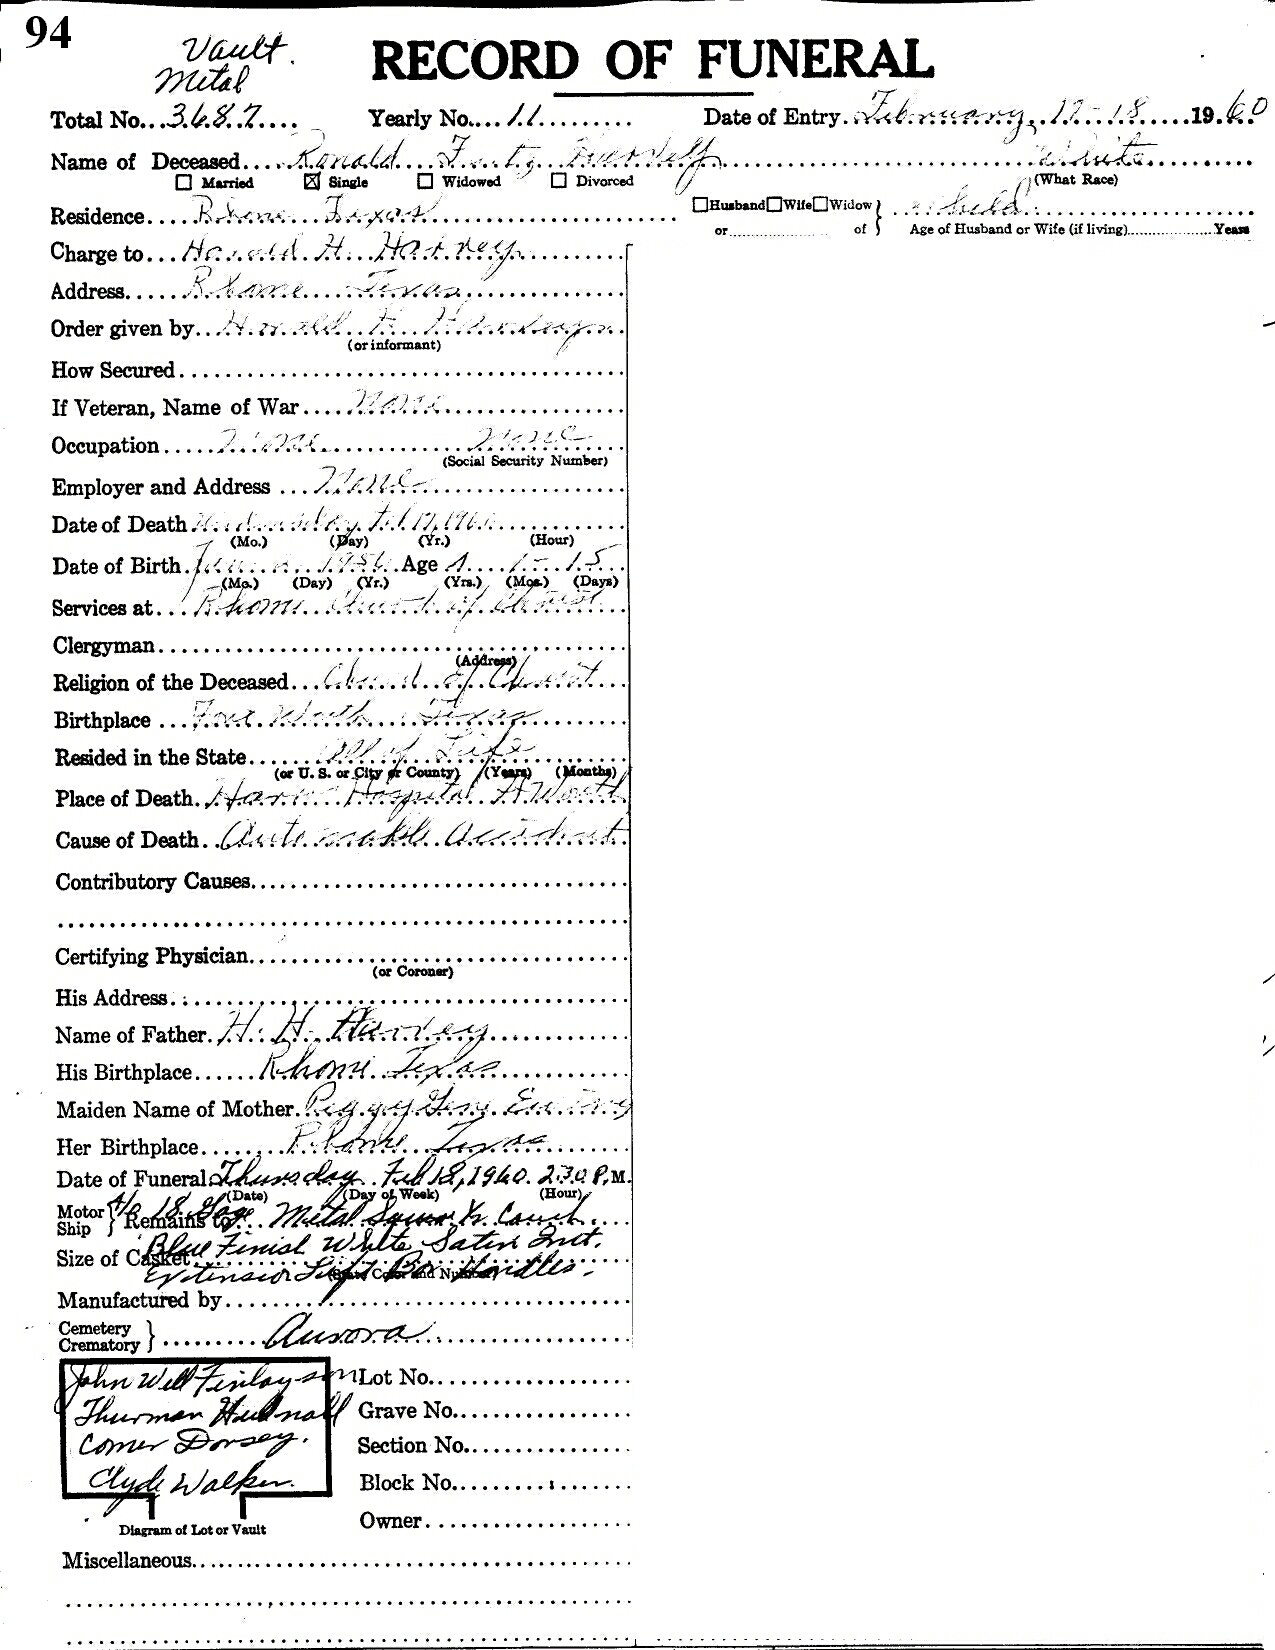 94
Vault.
Metal
RECORD OF FUNERAL
Total No. 3687 Yearly No. 11 Date of Entry. February, 17-18 1960
Name of Deceased Ronald White
Married ☒ Single Widowed Divorced (What Race)
Residence Rhome Texas Husband Wife Widow Child
or of Age of Husband or Wife (if living) Years
Charge to Harold H. Harvey
Address Rhome Texas
Order given by Harold H.
(or informant)
How Secured
If Veteran, Name of War None
Occupation None None
(Social Security Number)
Employer and Address None
Date of Death Wednesday, Feb 17, 1960
(Mo.) (Day) (Yr.) (Hour)
Date of Birth Age 15
(Mo.) (Day) (Yr.) (Yrs.) (Mos.) (Days)
Services at Rhome Church of Christ
Clergyman
(Address)
Religion of the Deceased Church of Christ
Birthplace Fort Worth Texas
Resided in the State All of Life
(or U. S. or City or County) (Years) (Months)
Place of Death. Harris Hospital Ft Worth
Cause of Death Automobile accident
Contributory Causes
Certifying Physician
(or Coroner)
His Address
Name of Father. H. H. Harvey
His Birthplace Rhome Texas
Maiden Name of Mother. Peggy Gene
Her Birthplace Rhome Texas
Date of Funeral Thursday Feb 18, 1960. 2:30 P.M.
(Date) (Day of Week) (Hour)
Motor Ship } Remains to 18 Gage Metal Square
Size of Casket Blue Finish White Satin Int.
Extension Bar Handles.
Manufactured by
Cemetery
Crematory } Aurora
John Will Finlayson Lot No.
Thurman Hudnall Grave No.
Comer Dorsey. Section No.
Clyde Walker. Block No.
Diagram of Lot or Vault Owner
Miscellaneous